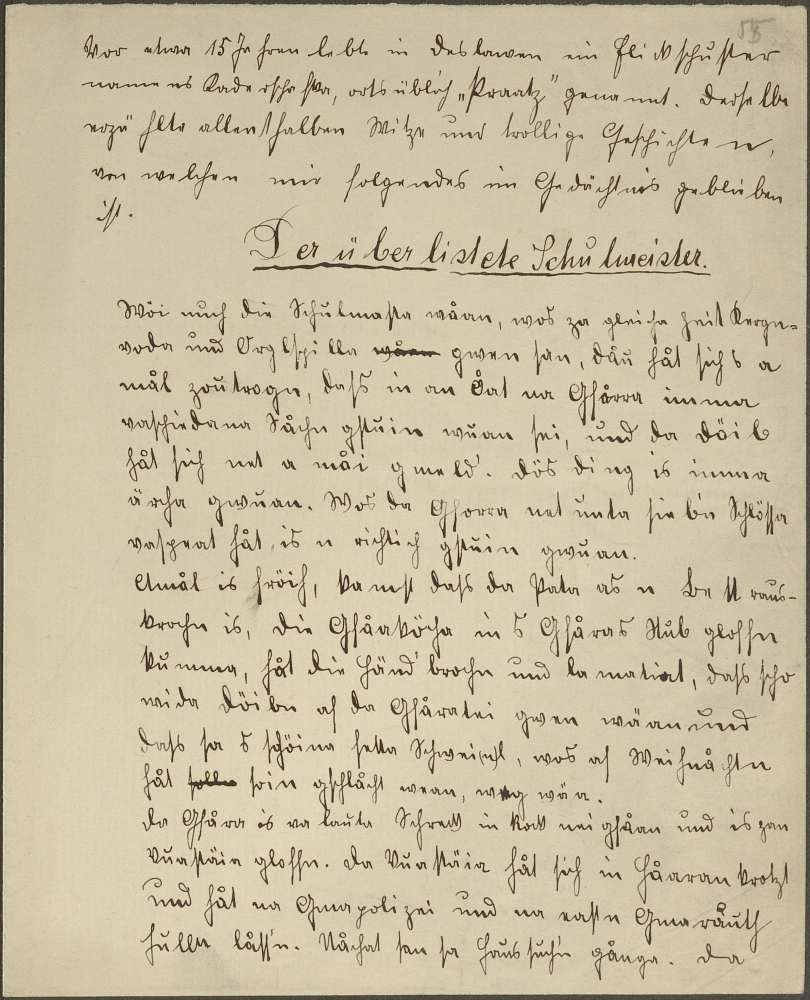 55
Vor etwa 15 Jahren lebte in Deslawen ein Flickschuster
namens Kaderschafka, ortsüblich „Kraatz" genannt. Derselbe
erzählte allenthalben Witze und trollige Geschichten,
von welchen mir folgendes im Gedächtnis geblieben
ist.
Der überlistete Schulmeister.
Wöi nuch die Schulmasta wåan, wos za gleicha Zeit Kergn-
voda und Orglspilla gwen san, dåu håt sichs a
mål zoutrogn, dass in an Åat na Gfårra imma
vaschiedana Såchn gstuin wuan sei, und da Döib
håt sich net a måi gmeld'. Dös Ding is imma
ärcha gwuan. Wos da Gforra net unta siebn Schlössa
vaspeat håt, is n richtich gstuin gwuan.
Amål is fröih, kamst dass da Pata as n Bett raus-
krochn is, die Gfåaköcha in s Gfåras Stub gloffn
kumma, håt die Händ brochn und lamatiat, dass scho
wida Döibn af da Gfåratei gwen wäan und
dass sa s schöina fetta Schwei(n)l, wos af Weihnåchtn
håt soin gschlåcht wean, weg wäa.
Da Gfåra is va lauta Schreck in Rock neigfåan und is zan
Vuastäia gloffn. Da Vuastäia håt sich in Håaran krotzt
und håt na Gmapolizei und na eastn Gmaråuth
hulln låss'n. Nåchat san sa Haussuch'n gånga. Da